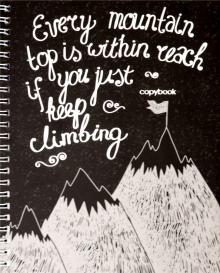 Every mountain
top is within reach
if you just
keep
climbing
copybook